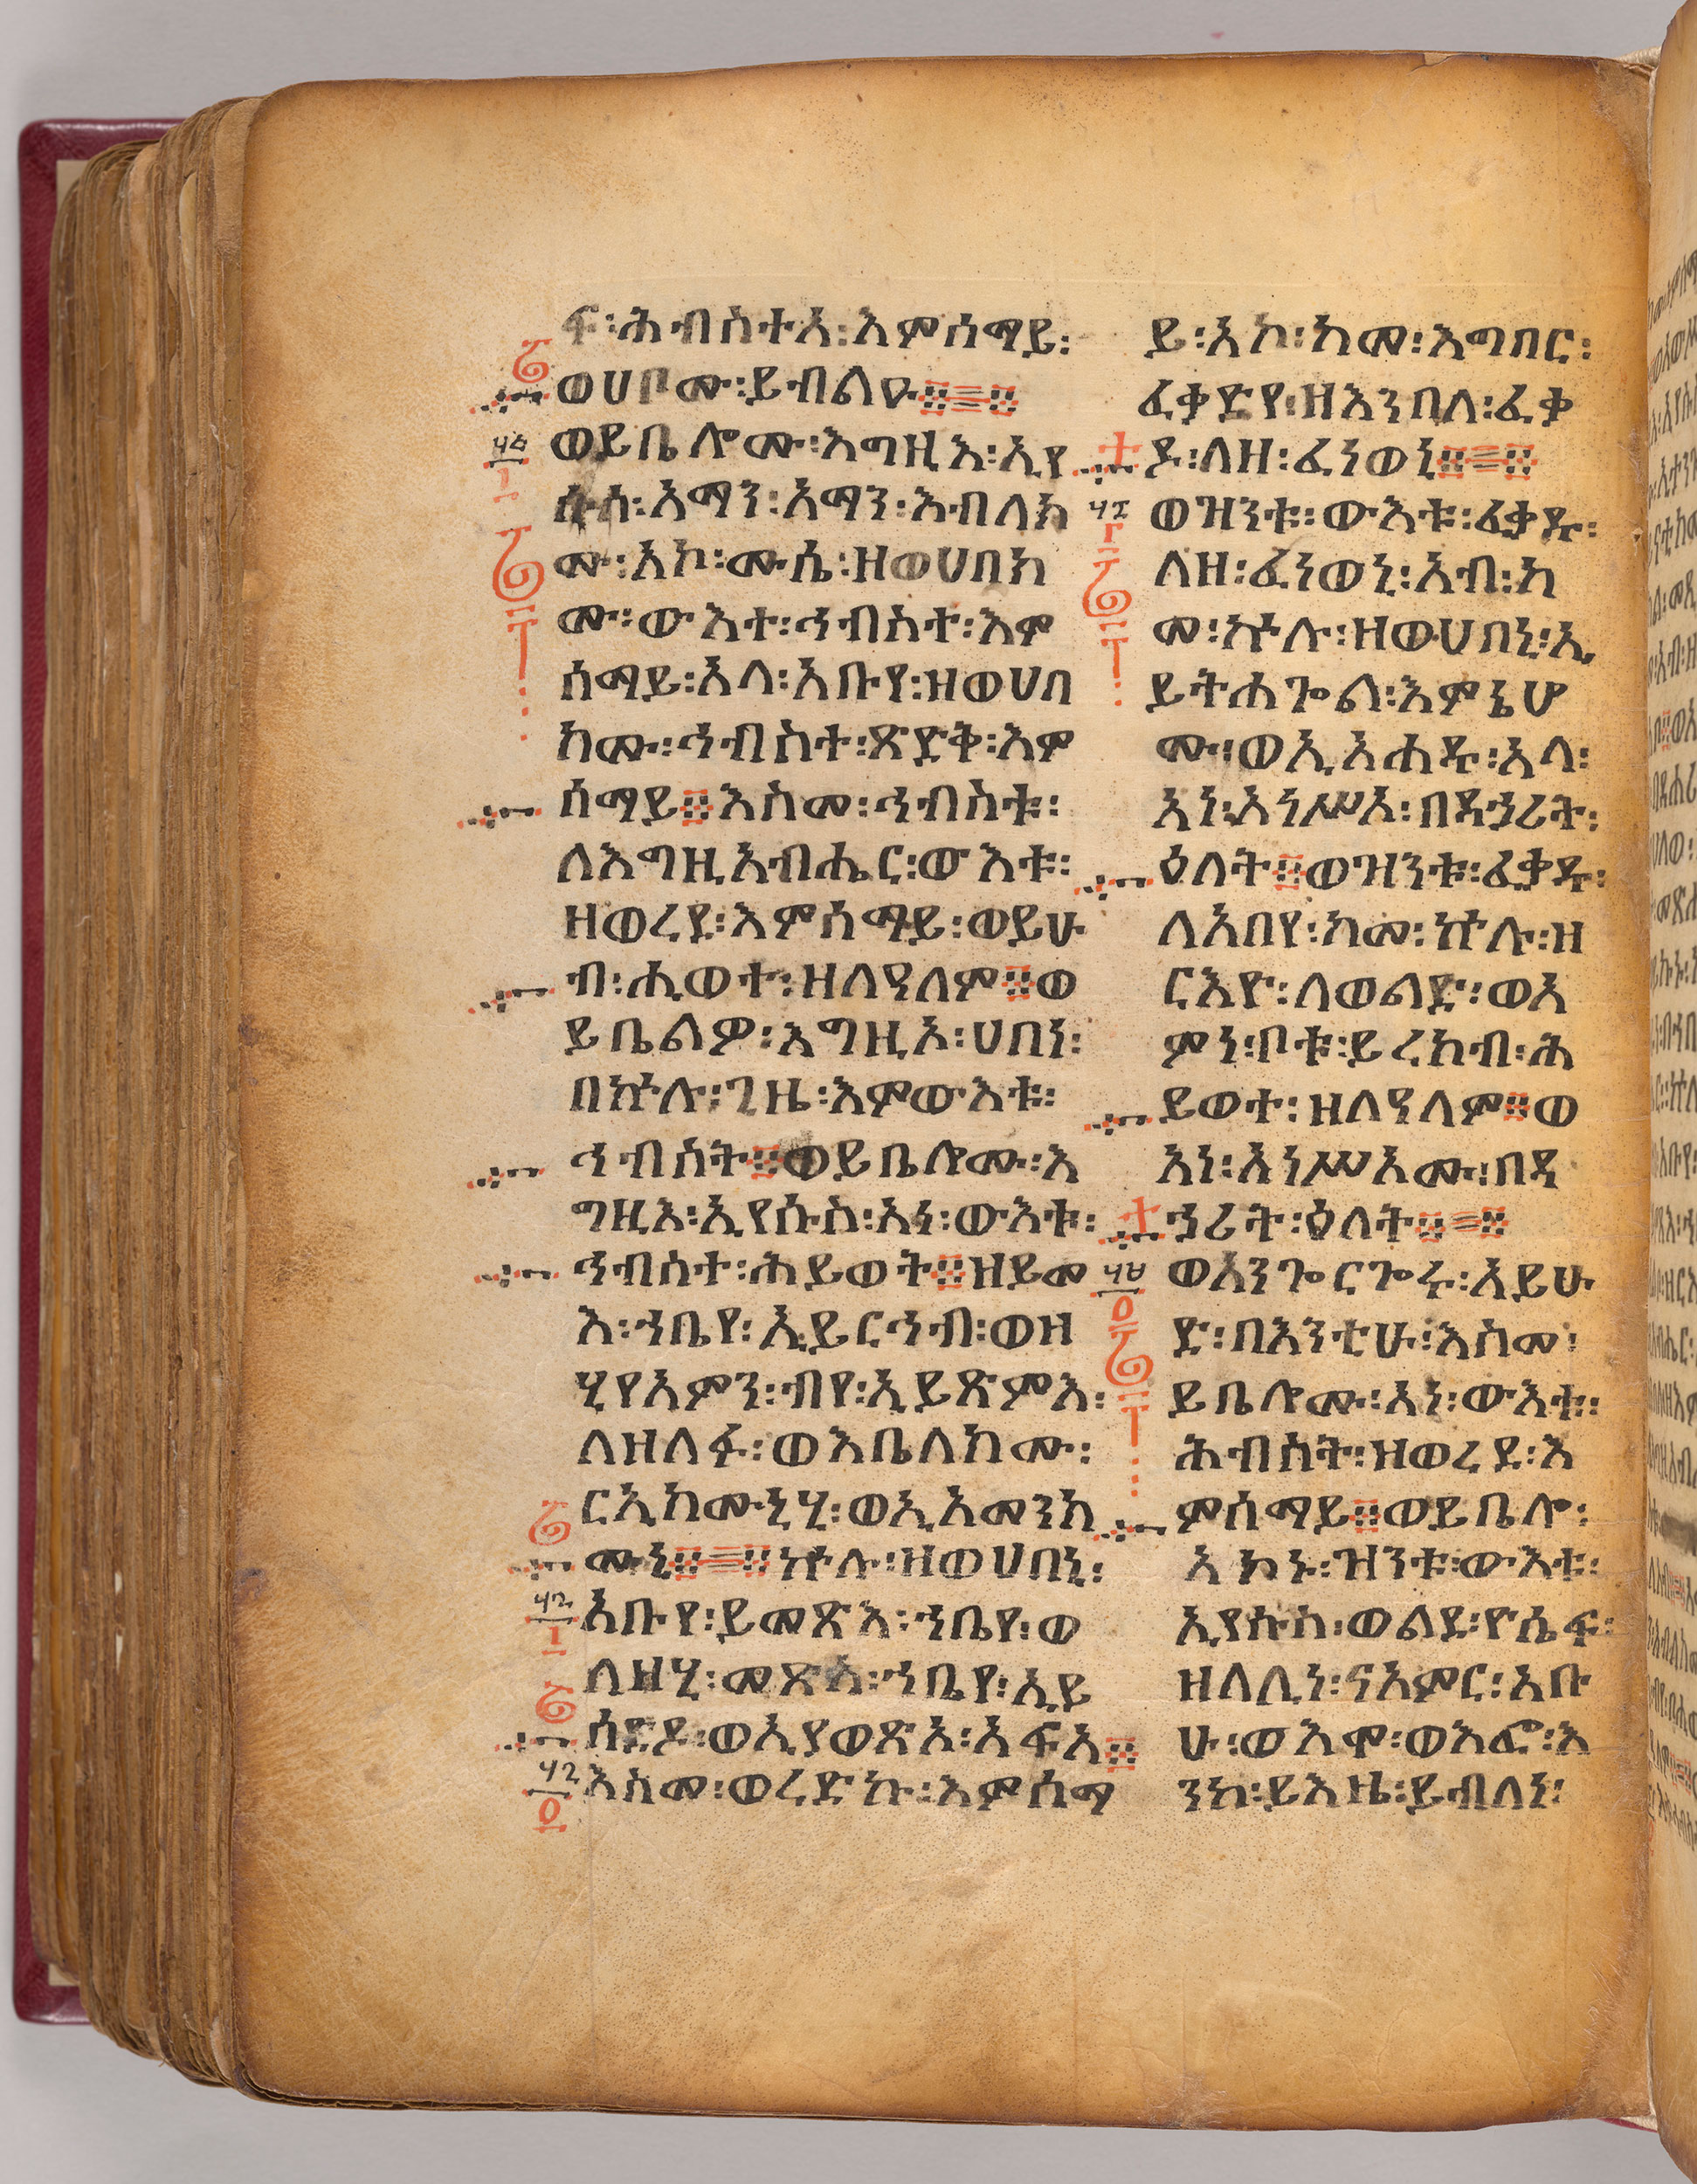 ፍ፡ሕብስተ፡እምሰማይ፡
ወሀቦሙ፡ይብልዑ
ወይቤሎሙ፡እግዚእ፡ኢየ
ሱስ፡አማን፡አማን፡እብለክ
ሙ፡አኮ፡ሙሴ፡ዘወሀበክ
ሙ፡ውእተ፡ኅብስተ፡እም
ሰማይ፡አላ፡አቡየ፡ዘወሀበ
ክሙ፡ኅብስተ፡ጽድቅ፡እም
ሰማይ፡እስመ፡ኅብስቱ፡
ለእግዚአብሔር፡ውእቱ፡
ዘወረደ፡እምሰማይ፡ወይሁ
ብ፡ሒወተ፡ዘለዓለም፡ወ
ይቤልዎ፡እግዚኦ፡ሀበነ፡
በኵሉ፡ጊዜ፡እምውእቱ፡
ኅብስት፡ወይቤሎሙ፡እ
ግዚእ፡ኢየሱስ፡አነ፡ውእቱ፡
ኅብስተ፡ሕይወት፡ዘይመ
እ፡ኀቤየ፡ኢይርኅብ፡ወዘ
ሂየአምን፡ብየ፡ኢይጸምእ፡
ለዘለፉ፡ወእቤለክሙ፡
ርኢክሙኒሂ፡ወኢአመንክ
ሙኒ፡ኵሉ፡ዘወሀበኒ፡
አቡየ፡ይመጽእ፡ኀቤየ፡ወ
ለዘሂ፡መጽአ፡ኀቤየ፡ኢይ
ሰድዶ፡ወኢያወጽኦ፡አፍአ
እስመ፡ወረድኩ፡እምሰማ
ይ፡አኮ፡ከመ፡እግበር፡
ፈቃድየ፡ዘእንበለ፡ፈቃ
ዶ፡ለዘ፡ፈነወኒ
ወዝንቱ፡ውእቱ፡ፈቃዱ፡
ለዘ፡ፈነወኒ፡አብ፡ከ
መ፡ኵሉ፡ዘውሀበኒ፡ኢ
ይትሐጐል፡እምኔሆ
ሙ፡ወኢአሐዱ፡አላ፡
አነ፡አነሥአ፡በዳኃሪት፡
ዕለት፡ወዝንቱ፡ፈቃዱ፡
ለአበየ፡ከመ፡ኵሉ፡ዘ
ርእዮ፡ለወልድ፡ወአ
ምነ፡ቦቱ፡ይረክብ፡ሕ
ይወተ፡ዘለዓለም፡ወ
አነ፡አነሥአሙ፡በዳ
ኃሪት፡ዕለት
ወአንጐርጐሩ፡አይሁ
ድ፡በእንቲሁ፡እስመ፡
ይቤሎሙ፡አነ፡ውእቱ፡
ሕብስት፡ዝወረደ፡እ
ምሰማይ፡ወይቤሎ፡
አኮኑ፡ዝንቱ፡ውእቱ፡
ኢየሱስ፡ወልደ፡ዮሴፍ፡
ዘለሊነ፡ናአምር፡አቡ
ሁ፡ወእሞ፡ወእፎ፡እ
ንከ፡ይእዜ፡ይብለነ፡